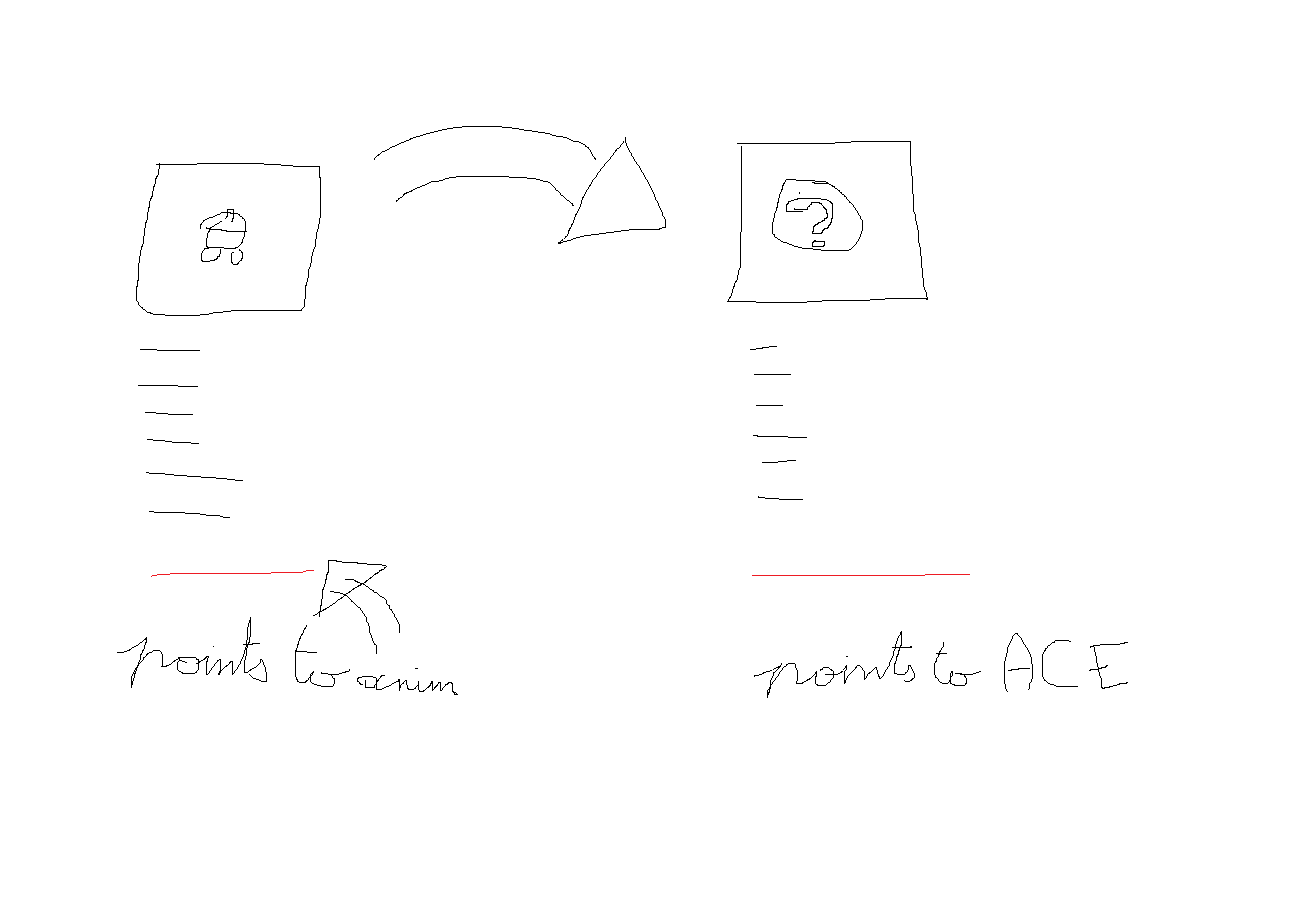 ?
points to anim
points to ACE